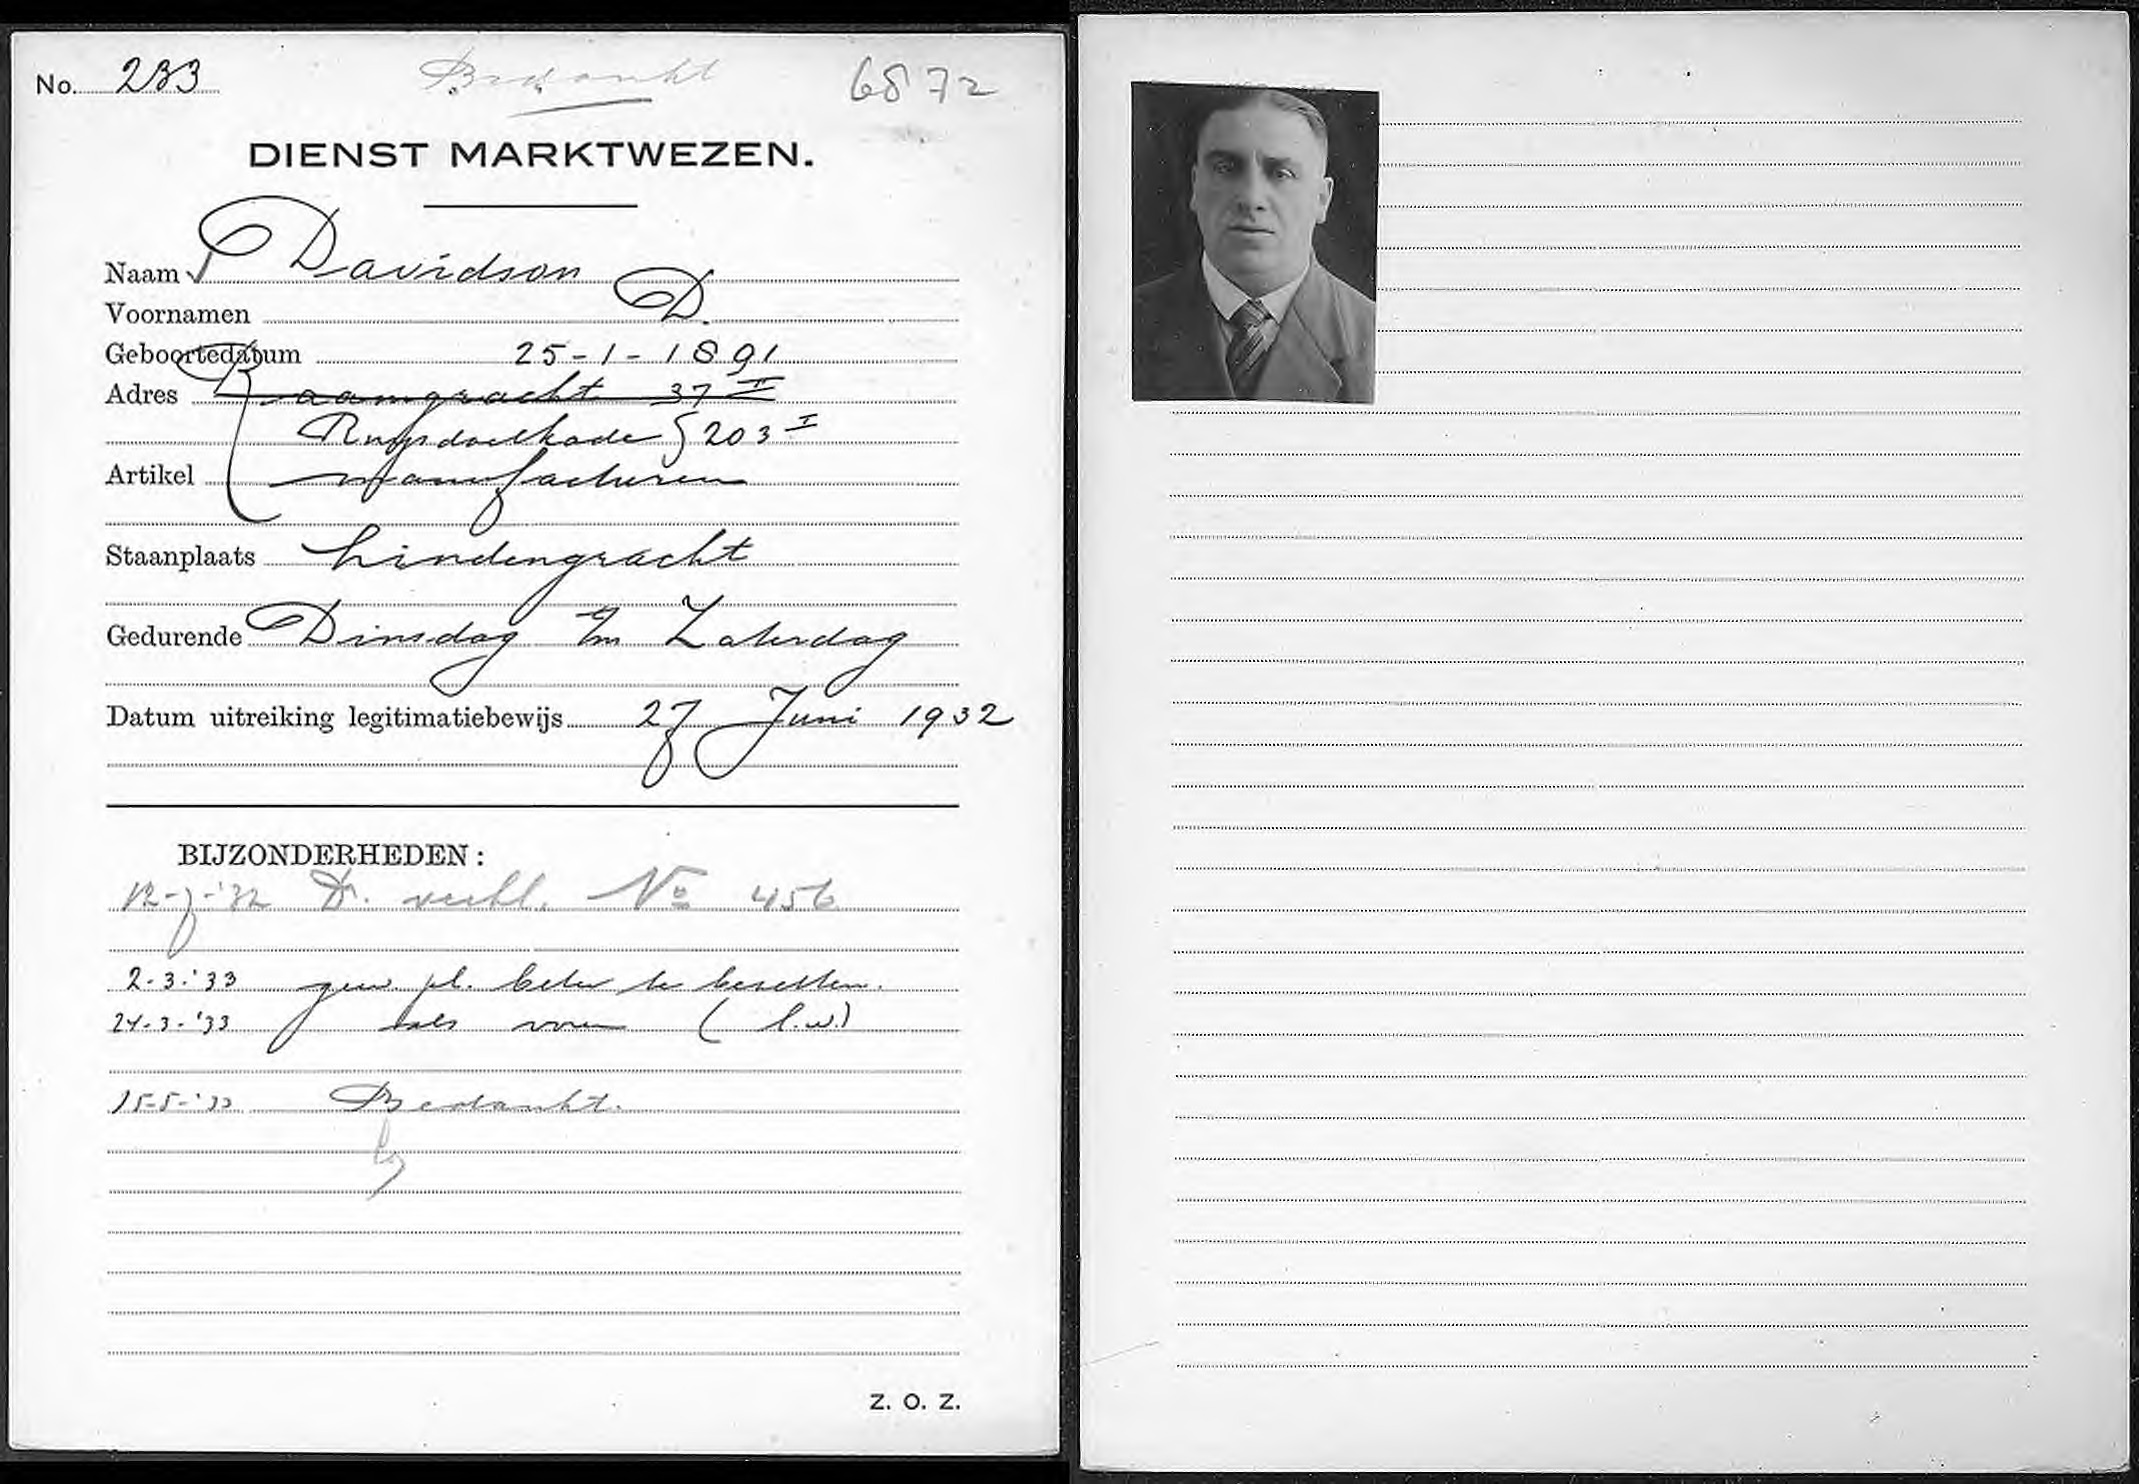 No. 233
Bedankt
6872
DIENST MARKTWEZEN.
Naam Davidson
Voornamen D.
Geboortedatum 25-1-1891
Adres Raamgracht 37 II
Ruysdaelkade 203 I
Artikel Manufacturen
Staanplaats Lindengracht
Gedurende Dinsdag t/m Zaterdag
Datum uitreiking legitimatiebewijs 27 Juni 1932
BIJZONDERHEDEN:
12-7-'32 D. No 456
2-3-'33 gew. pl. beter te bezetten.
24-3-'33 als voren (l.w.)
15-5-'33 Bedankt.
Z. O. Z.